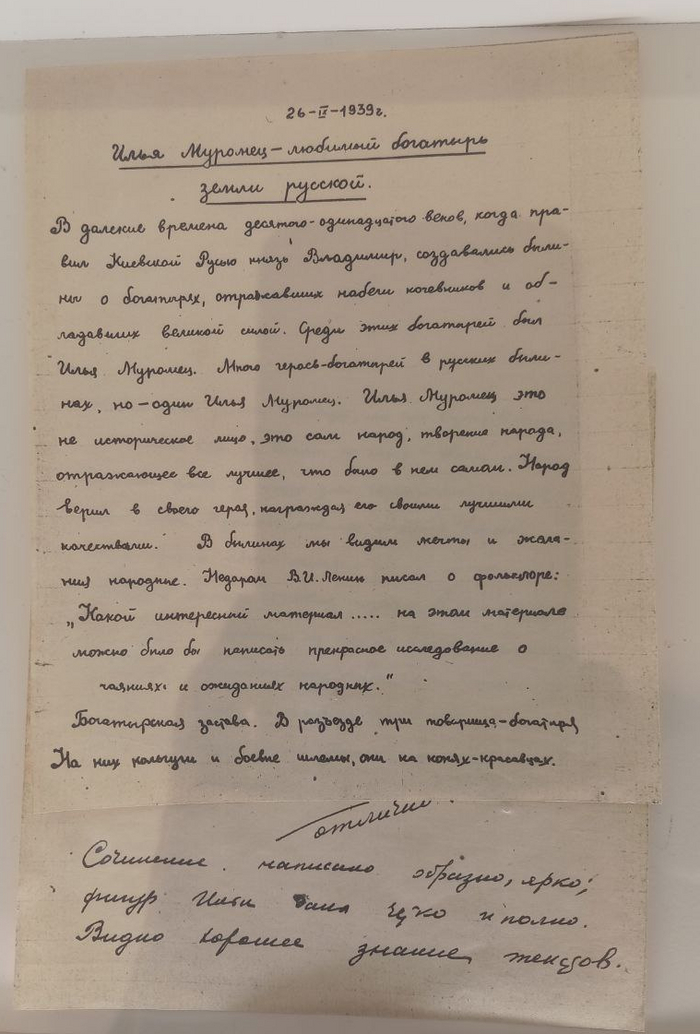 26-IX-1939г.
Илья Муромец – любимый богатырь
земли русской.
В далекие времена десятого-одинадцатого веков, когда пра-
вил Киевской Русью князь Владимир, создавались были-
ны о богатырях, отражавших набеги кочевников и об-
ладавших великой силой. Среди этих богатырей был
Илья Муромец. Много героев-богатырей в русских были-
нах, но – один Илья Муромец. Илья Муромец это
не историческое лицо, это сам народ, творение народа,
отражающее все лучшее, что было в нем самом. Народ
верил в своего героя, награждая его своими лучшими
качествами. В былинах мы видим мечты и жела-
ния народные. Недаром В.И. Ленин писал о фольклоре:
„Какой интересный материал ..... на этом материале
можно было бы написать прекрасное исследование о
чаяниях и ожиданиях народных."
Богатырская застава. В разъезде три товарища-богатыря
На них кольчуги и боевые шлемы, они на конях-красавцах.
отлично.
Сочинение написано образно, ярко;
фигур Ильи дана и полно.
Видно хорошее знание текстов.